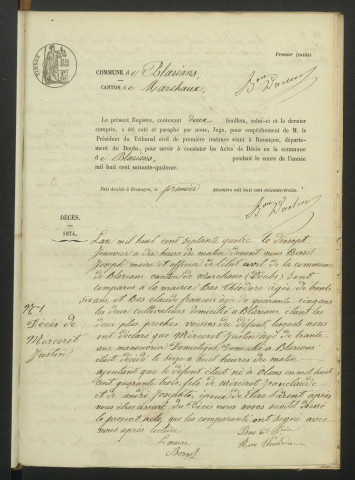 Premier feuillet.
COMMUNE d e Blarians,
CANTON d e Marchaux,
Le présent Registre, contenant deux feuillets, celui-ci et le dernier
compris, a été coté et paraphé par nous, Juge, pour empêchement de M. le
Président du Tribunal civil de première instance séant à Besançon, départe-
ment du Doubs, pour servir à constater les Actes de Décès en la commune
d e Blarians, pendant le cours de l'année
mil huit cent soixante-quatorze.
Fait double à Besançon, le premier décembre mil huit cent soixante-treize.
DÉCÈS.
1874.
L'an mil huit cent septante quatre le
janvier à dix heures du matin devant nous
Joseph maire et officier de l'état civil de la commune
de Blarians canton de Marchaux (Doubs) sont
comparus a la mairie Bas Théodore âgé de trente
six ans, et Bas claude francois âgé de quarante cinq ans
les deux cultivateurs domicilié a Blarians étant les
deux plus proches voisins du défunt, lesquels nous
ont déclaré que Mercerot Justin âgé de trente
ans manouvrier Domestique Domicilié a Blarians
était décédé le a huit heures du matin
ajoutant que le défunt était né à en mil huit
cent quarante trois fils de mercerot jean claude
et de andré Josephte, époux de après
nous être assuré du Décès nous avons
le présent acte, que les comparants ont signé avec
nous après lecture
N° 1
Décès de
Mercerot
Justin
Le maire
Bas
Bas théodore